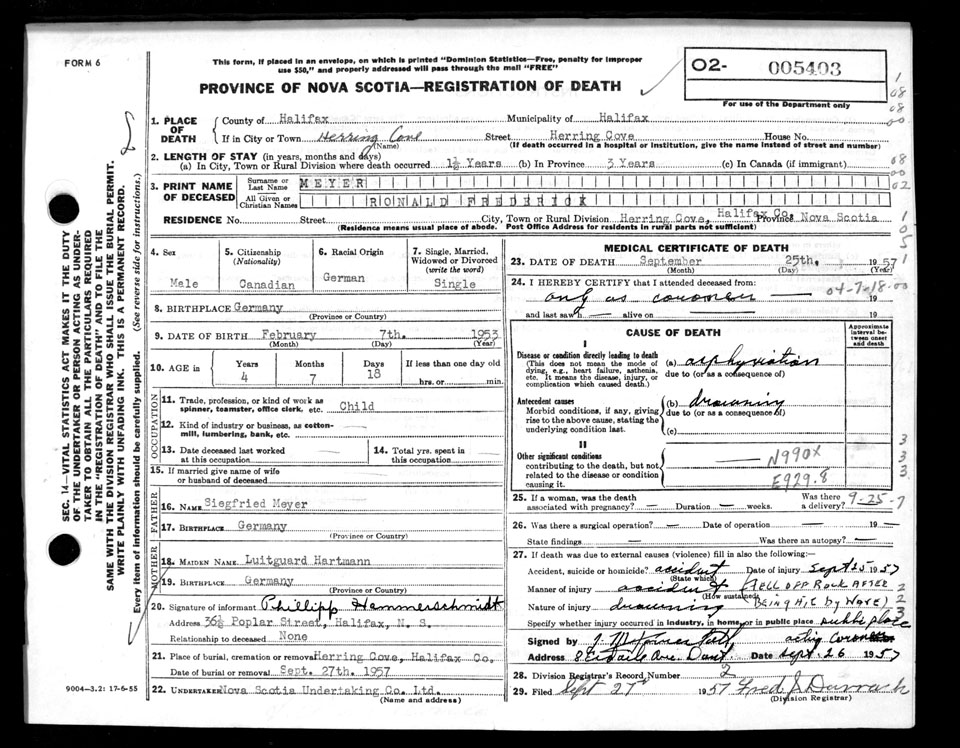 FORM 6
This form, if placed in an envelope, on which is printed "Dominion Statistics—Free, penalty for improper
use $50," and properly addressed will pass through the mail "FREE"
PROVINCE OF NOVA SCOTIA—REGISTRATION OF DEATH
O2- 005403
For use of the Department only
1. PLACE OF DEATH
County of Halifax Municipality of Halifax
If in City or Town Herring Cove Street Herring Cove House No.
(Name) (If death occurred in a hospital or institution, give the name instead of street and number)
2. LENGTH OF STAY (in years, months and days)
(a) In City, Town or Rural Division where death occurred 1½ Years (b) In Province 3 Years (c) In Canada (if immigrant)
3. PRINT NAME OF DECEASED
Surname or Last Name MEYER
All Given or Christian Names RONALD FREDERICK
RESIDENCE No. Street City, Town or Rural Division Herring Cove, Halifax Co. Province Nova Scotia
(Residence means usual place of abode. Post Office Address for residents in rural parts not sufficient)
SEC. 14—VITAL STATISTICS ACT MAKES IT THE DUTY
OF THE UNDERTAKER OR PERSON ACTING AS UNDER-
TAKER TO OBTAIN ALL THE PARTICULARS REQUIRED
IN THE "REGISTRATION OF DEATH" AND TO FILE THE
SAME WITH THE DIVISION REGISTRAR WHO SHALL ISSUE THE BURIAL PERMIT.
WRITE PLAINLY WITH UNFADING INK. THIS IS A PERMANENT RECORD.
Every item of information should be carefully supplied. (See reverse side for instructions.)
4. Sex
Male
5. Citizenship
(Nationality)
Canadian
6. Racial Origin
German
7. Single, Married,
Widowed or Divorced
(write the word)
Single
8. BIRTHPLACE Germany
(Province or Country)
9. DATE OF BIRTH February 7th. 1953
(Month) (Day) (Year)
10. AGE in
Years 4
Months 7
Days 18
If less than one day old
hrs. or min.
OCCUPATION
11. Trade, profession or kind of work as
spinner, teamster, office clerk, etc. Child
12. Kind of industry or business, as cotton-
mill, lumbering, bank, etc.
13. Date deceased last worked
at this occupation
14. Total yrs. spent in
this occupation
15. If married give name of wife
or husband of deceased
FATHER
16. NAME Siegfried Meyer
17. BIRTHPLACE Germany
(Province or Country)
MOTHER
18. MAIDEN NAME Luitguard Hartmann
19. BIRTHPLACE Germany
(Province or Country)
20. Signature of informant Phillipp Hammerschmidt
Address 36½ Poplar Street, Halifax, N. S.
Relationship to deceased None
21. Place of burial, cremation or removal Herring Cove, Halifax Co.
Date of burial or removal Sept. 27th. 1957
22. UNDERTAKER Nova Scotia Undertaking Co. Ltd.
(Name and address)
9004-3.2: 17-6-55
MEDICAL CERTIFICATE OF DEATH
23. DATE OF DEATH September 25th. 1957
(Month) (Day) (Year)
24. I HEREBY CERTIFY that I attended deceased from:
only as coroner 19
04-7-18.00
and last saw h alive on 19
CAUSE OF DEATH
Approximate
interval be-
tween onset
and death
I
Disease or condition directly leading to death
(This does not mean the mode of
dying, e.g., heart failure, asthenia,
etc. It means the disease, injury, or
complication which caused death.)
(a) asphyxiation
due to (or as a consequence of)
Antecedent causes
Morbid conditions, if any, giving
rise to the above cause, stating the
underlying condition last.
(b) drowning
due to (or as a consequence of)
(c)
II
Other significant conditions
contributing to the death, but not
related to the disease or condition
causing it.
N990X
E929.8
25. If a woman, was the death
associated with pregnancy? Duration weeks.
Was there
a delivery?
9-25-7
26. Was there a surgical operation? Date of operation 19
State findings Was there an autopsy?
27. If death was due to external causes (violence) fill in also the following:
Accident, suicide or homicide? accident Date of injury Sept 25 1957
(State which)
Manner of injury accident (FELL OFF ROCK AFTER
(How sustained)
Nature of injury drowning BEING HIT BY WAVE)
Specify whether injury occurred in industry, in home, or in public place public place
Signed by acting Coroner
Address Ave. Dart. Date Sept. 26 1957
28. Division Registrar's Record Number 2
29. Filed Sept 27th 1957 Fred J.
(Division Registrar)